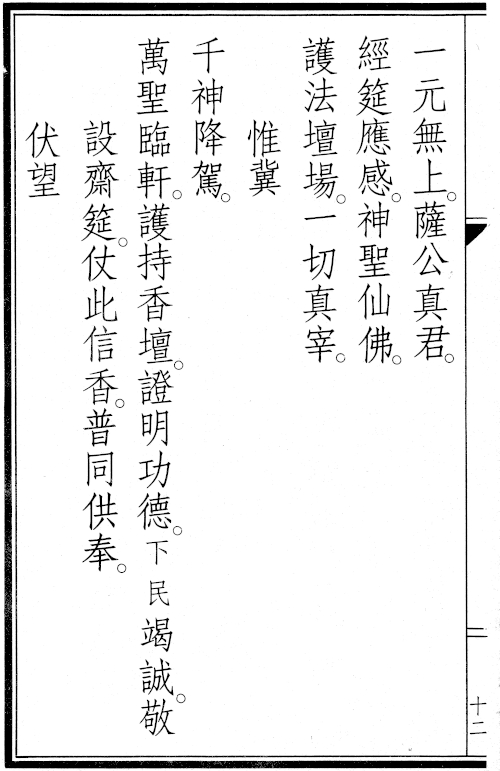 一元無上。薩公真君。
經筵應感。神聖仙佛。
護法壇場。一切真宰。
惟冀
千神降駕。
萬聖臨軒。護持香壇。證明功德。下民竭誠。敬
設齋筵。仗此信香。普同供奉。
伏望
十二